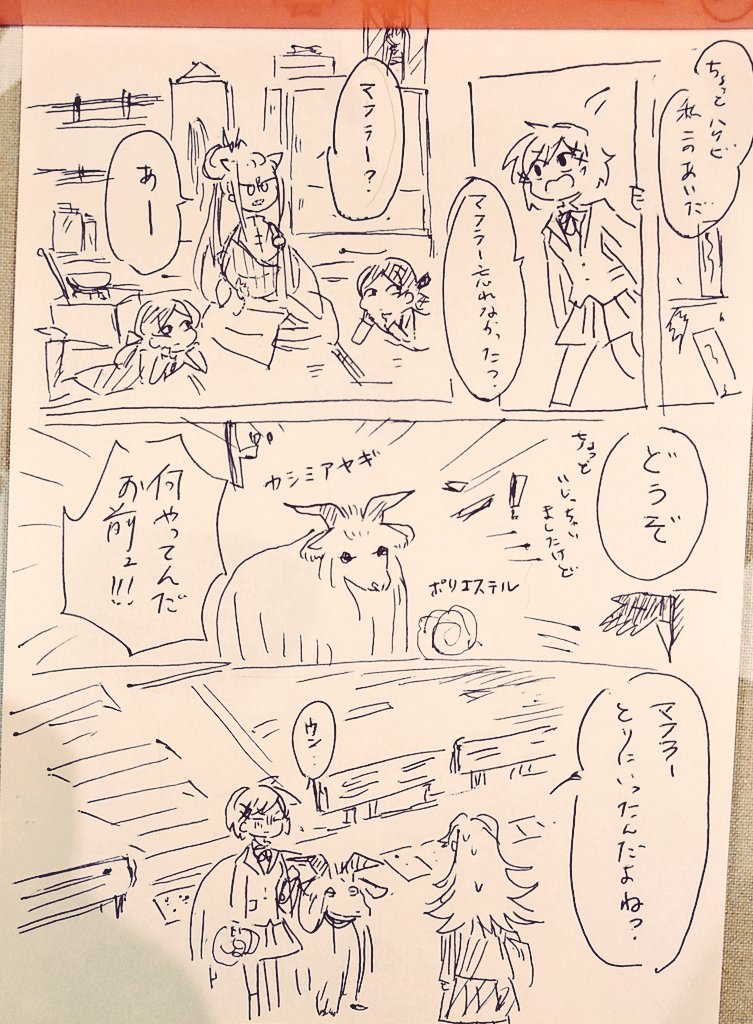 ちょっとハケビ
私このあいだ
マフラー忘れなかった?
マフラー?
あー
どうぞ
ちょっと
いじっちゃい
ましたけど
!
ポリエステル
カシミアヤギ
何やってんだ
お前ェ!!!
マフラー
とりにいったんだよね?
ウン